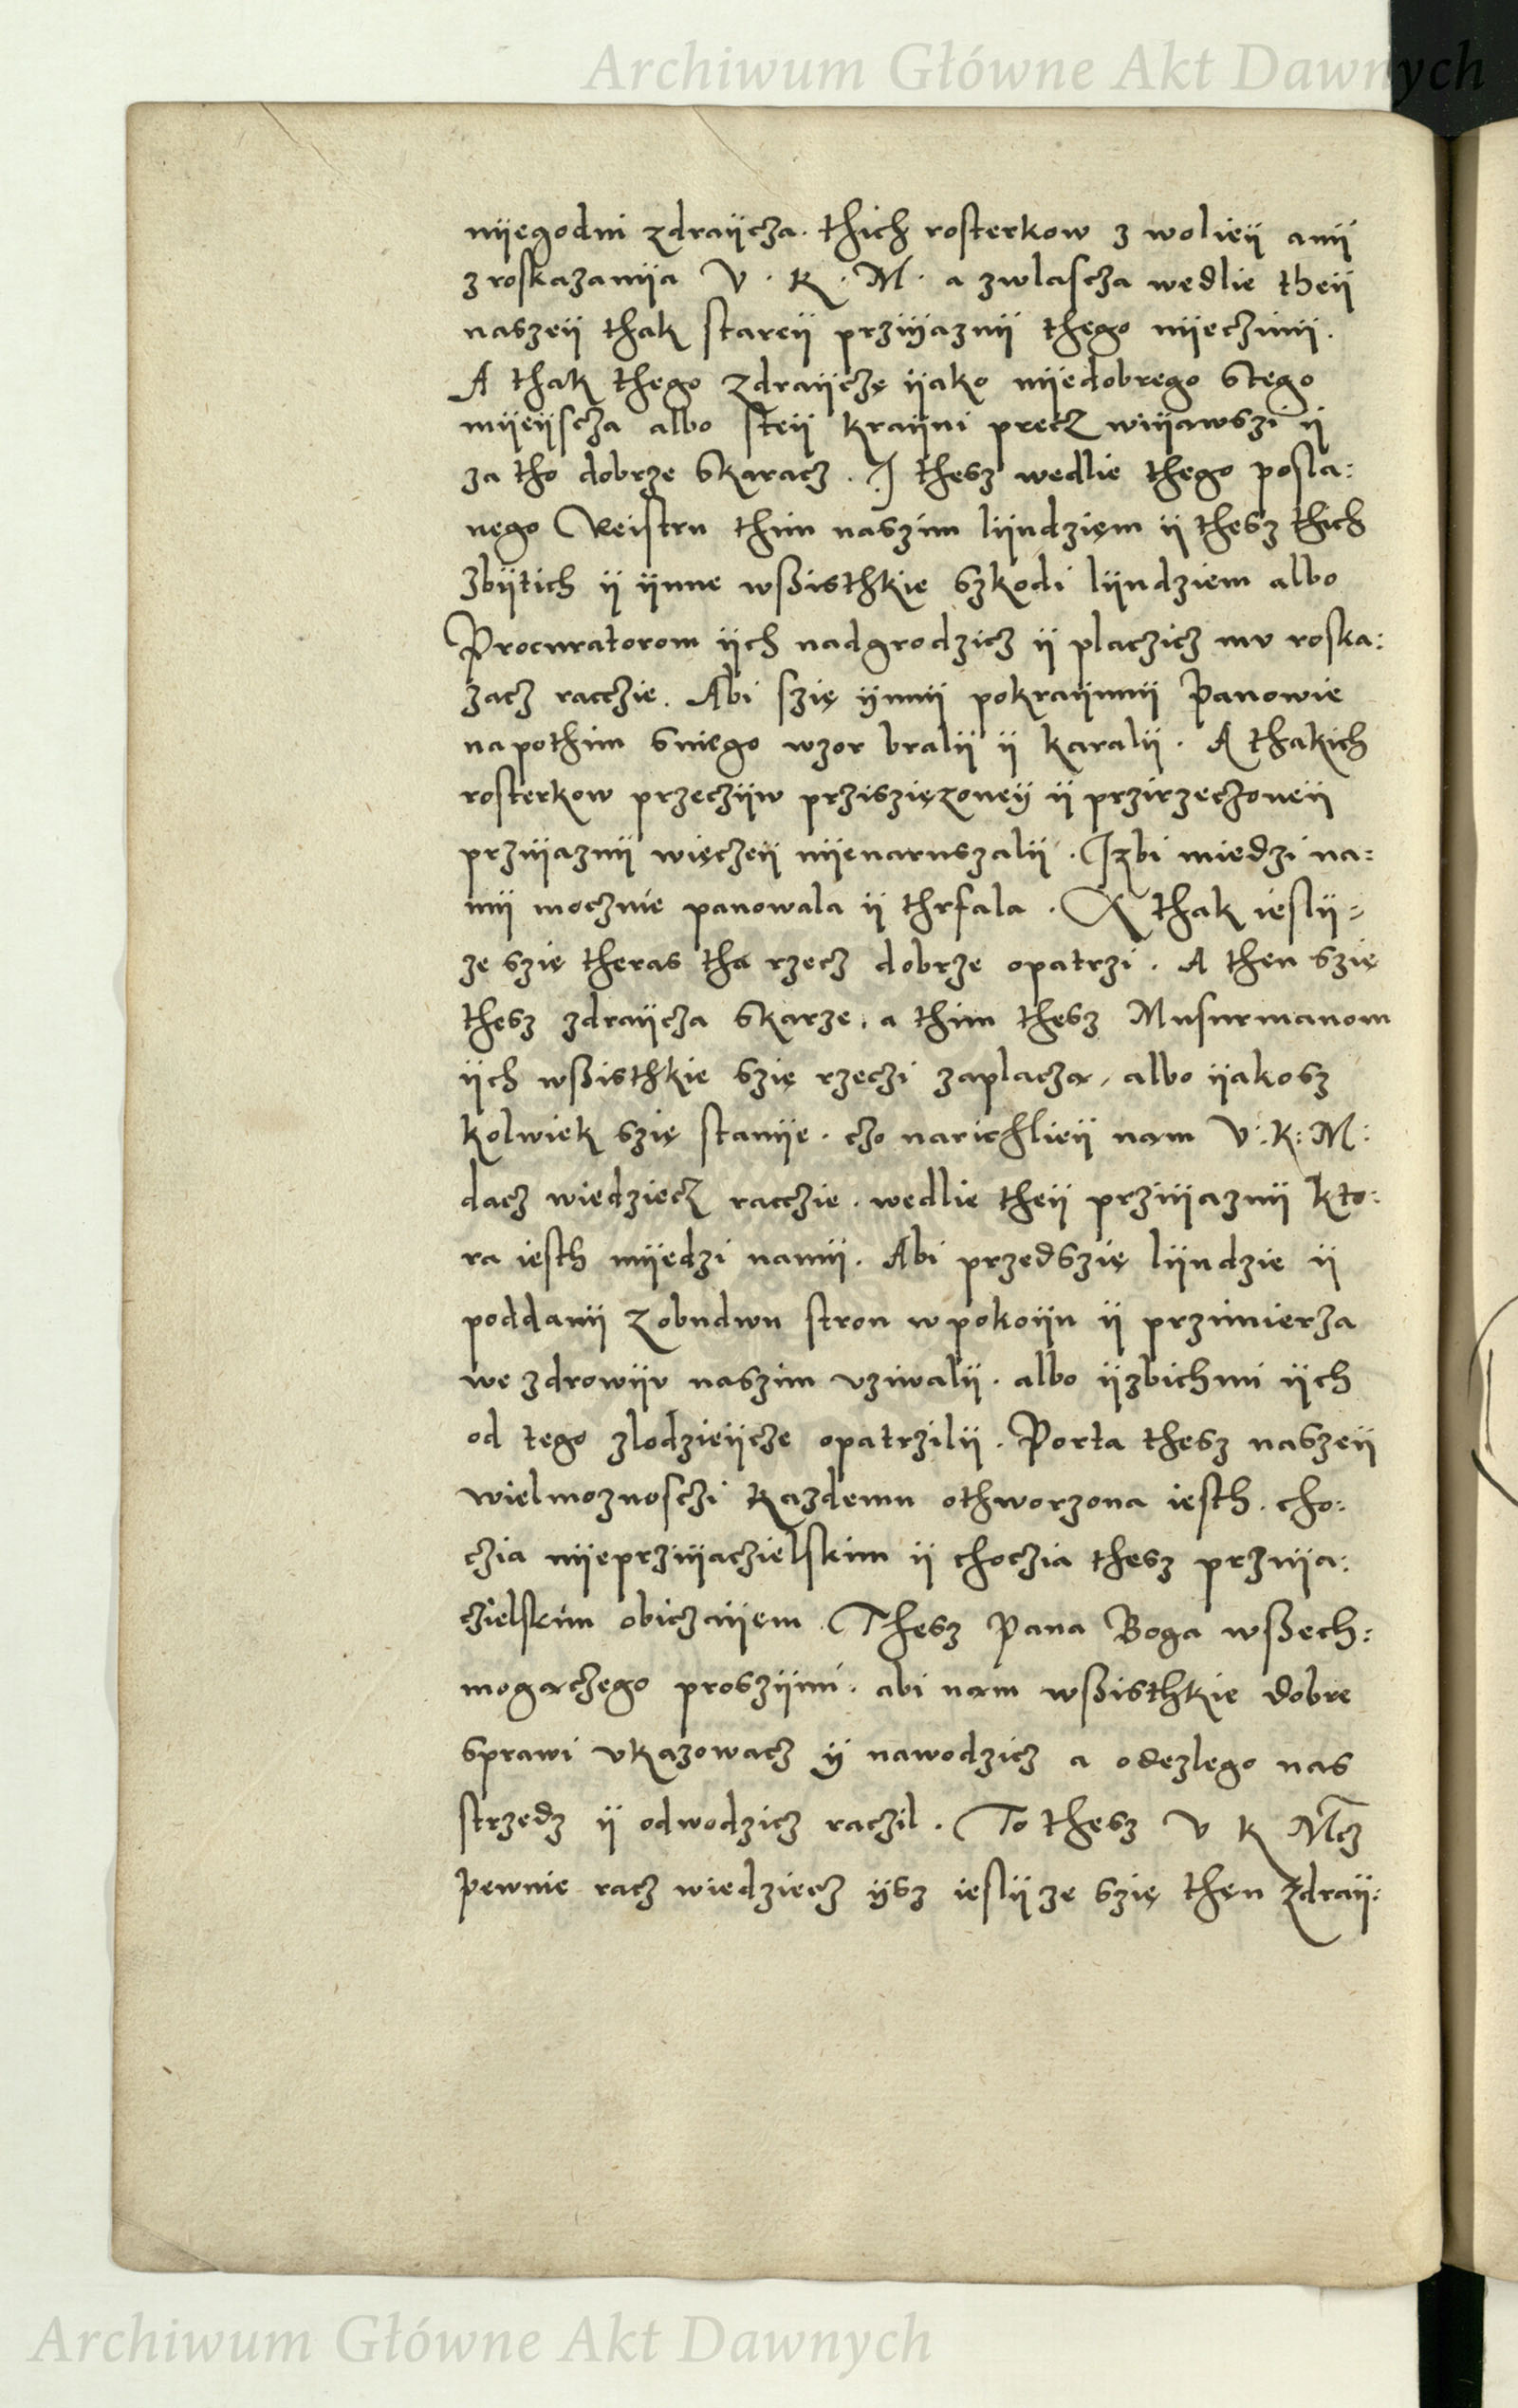 Archiwum Główne Akt Dawnych
nijegodni zdraijcza. thich rosterkow z wolieij anij
z roskazanija V. K. M. a zwlascza wedlie theij
naszeij thak stareij przijaznij thego nijeczinij.
A thak thego zdraijczę ijako nijedobrego stego
mijeijscza albo steij kraijni precz wijawszi ij
za tho dobrze skaracz. I thesz wedlie thego posla:
nego Reistru thim naszim lijudzięm ij thesz thich
zbijtich ij ijnne wßisthkie szkodi lijudziem albo
Procuratorom ijch nadgrodzicz ij placzicz mu roska:
zacz racczie. Abi szię ijnnij pokraijnnij Panowie
napothim sniego wzor bralij ij karalij. A thakich
rosterkow przeczijw prziszięzoneij ij przirzeczoneij
przijaznij więczeij nijenaruszalij. Izbi miedzi na=
mij mocznie panowala ij thrfala. A thak ieslij=
ze szię theras tha rzecz dobrze opatrzi. A then szię
thesz zdraijcza skarze, a thim thesz Musurmanom
ijch wßisthkie szię rzeczi zaplacza, albo ijakosz
kolwiek szię stanije. czo narichlieij nam V: K: M:
dacz wiedziecz racczie. wedlie theij przijaznij kto:
ra iesth mijedzi namij. Abi przedszię lijudzie ij
poddanij z obudwu stron w pokoiju ij przimierza
we zdrowiju naszim vziwalij. albo ijzbichmi ijch
od tego zlodzieijcze opatrzilij. Porta thesz naszeij
wielmoznosczi kazdemu othworzona iesth. cho:
czia nijeprzijaczielskim ij choczia thesz przija:
czielskim obiczaijem. Thesz Pana Boga wßech:
mogaczego proszijmi. abi nam wßisthkie dobre
sprawi vkazowacz ij nawodzicz a odezlego nas
strzedz ij odwodzicz raczil. To thesz V K Mcz
pewnie racz wiedziecz ijsz ieslijze szię then zdraij:
Archiwum Główne Akt Dawnych